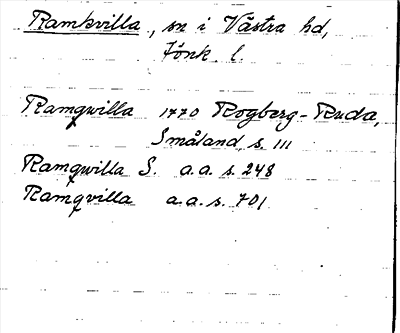 Ramkvilla, sn i Västra hd,
Jönk. l.
Ramqwilla 1770 Rogberg-Ruda,
Småland s. 111
Ramqwilla S. a.a. s. 248
Ramqvilla a.a. s. 701